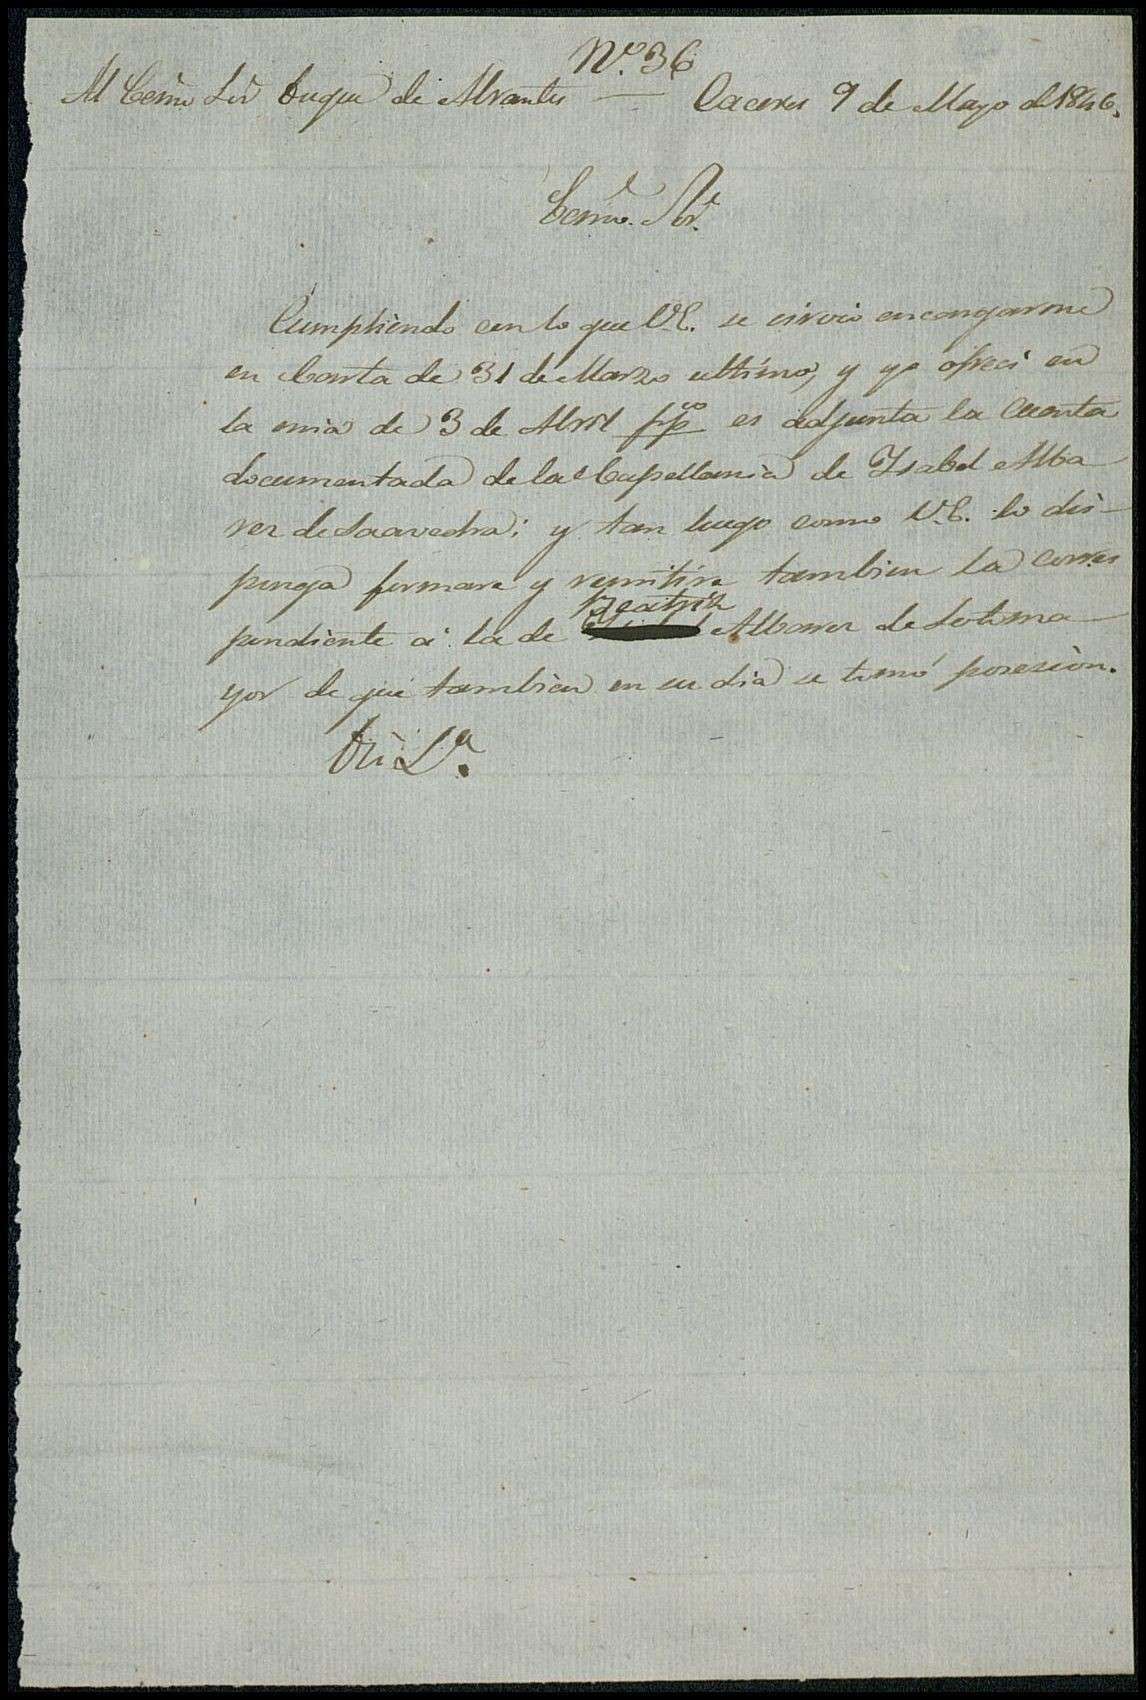 Nº. 36
Al Esmo Sor Duque de Abrantes — Caceres 9 de Mayo de 1846.
Esmo. Sor.
Cumpliendo con lo que V.E. se sirvio encargarme
en Carta de 31 de Marzo ultimo, y yo ofreci en
la mia de 3 de Abril ppdo es adjunta la Cuenta
documentada de la Capellania de Isabel Alba
rez de Saavedra; y tan luego como V.E. lo dis-
ponga formare y remitire tambien la corres
pondiente á la de Beatriz Albarez de Sotoma
yor de que tambien en su dia se tomó posesion.